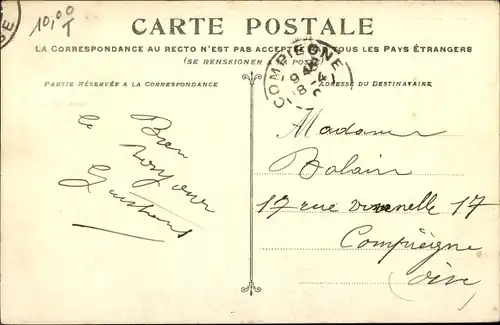 10,00
T
CARTE POSTALE
LA CORRESPONDANCE AU RECTO N'EST PAS ACCEPTÉE PAR TOUS LES PAYS ÉTRANGERS
(SE RENSEIGNER A LA POSTE)
PARTIE RÉSERVÉE A LA CORRESPONDANCE
ADRESSE DU DESTINATAIRE
COMPIEGNE
8-4
Bien
le bonjour
Madame
Bolain
17 rue vivenelle 17
Compiègne
(Oise)